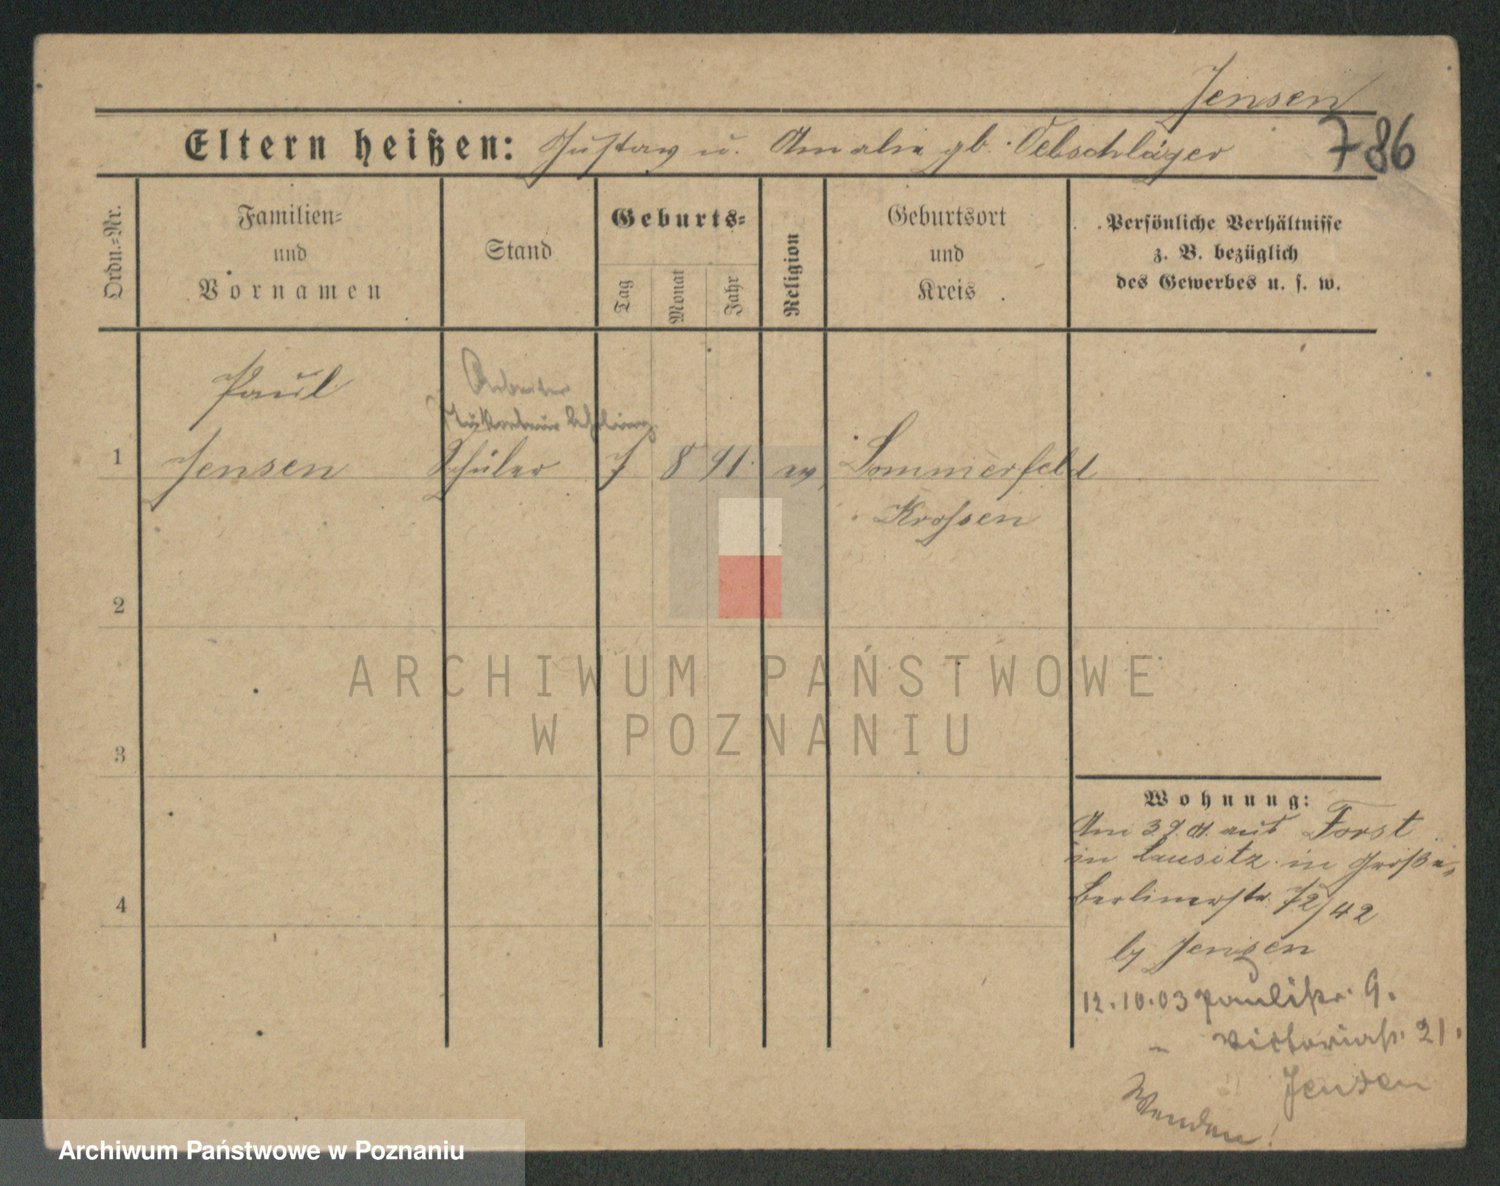 Jensen
Eltern heißen: Gustav u. Amalie gb. Oelschläger
786
Ordn.-Nr.
Familien-
und
Vornamen
Stand
Geburts-
Tag
Monat
Jahr
Religion
Geburtsort
und
Kreis
Persönliche Verhältnisse
z. B. bezüglich
des Gewerbes u. s. w.
Paul
Arbeiter
Lehrling
1 Jensen Schüler 7 8 91. ev. Sommerfeld
Krossen
2
3
4
ARCHIWUM PAŃSTWOWE
W POZNANIU
Wohnung:
Am aus Forst
in Lausitz in Große
Berlinerstr. 72/42
by Jensen
12.10.03 Paulistr. 9.
" Victoriastr. 21.
Jensen
Wenden!
Archiwum Państwowe w Poznaniu